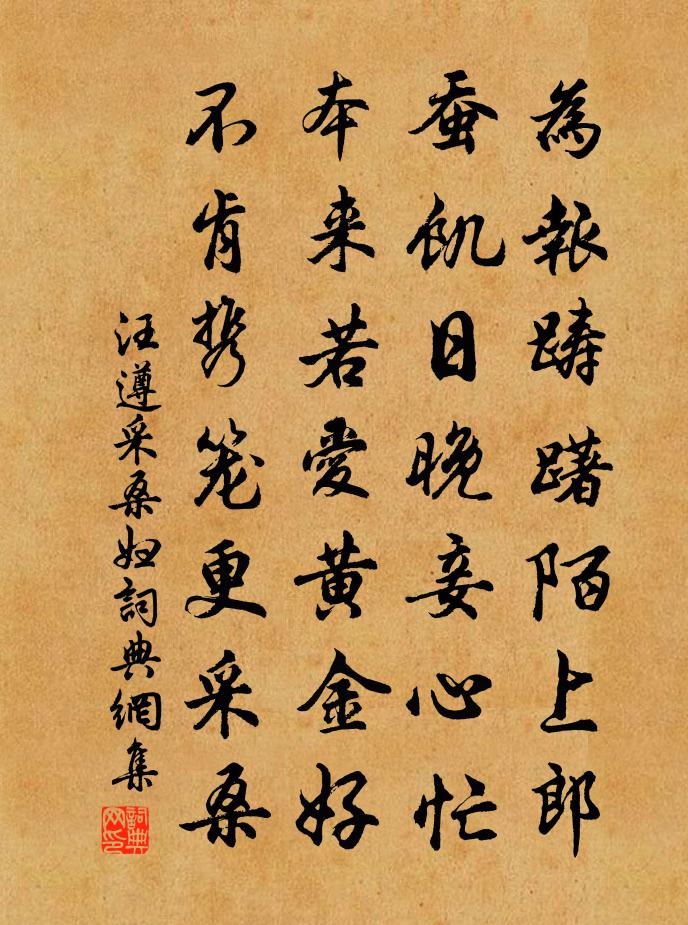 為報踌躇陌上郎
蚕飢日晚妾心忙
本来若愛黄金好
不肯携笼更采桑
汪遵采桑妇詞典網集
詞典网印